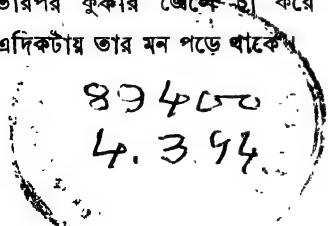 তারপর কুকার জ্বেলে হা করে
এদিকটায় তার মন পড়ে থাকে।
89400
4.3.94